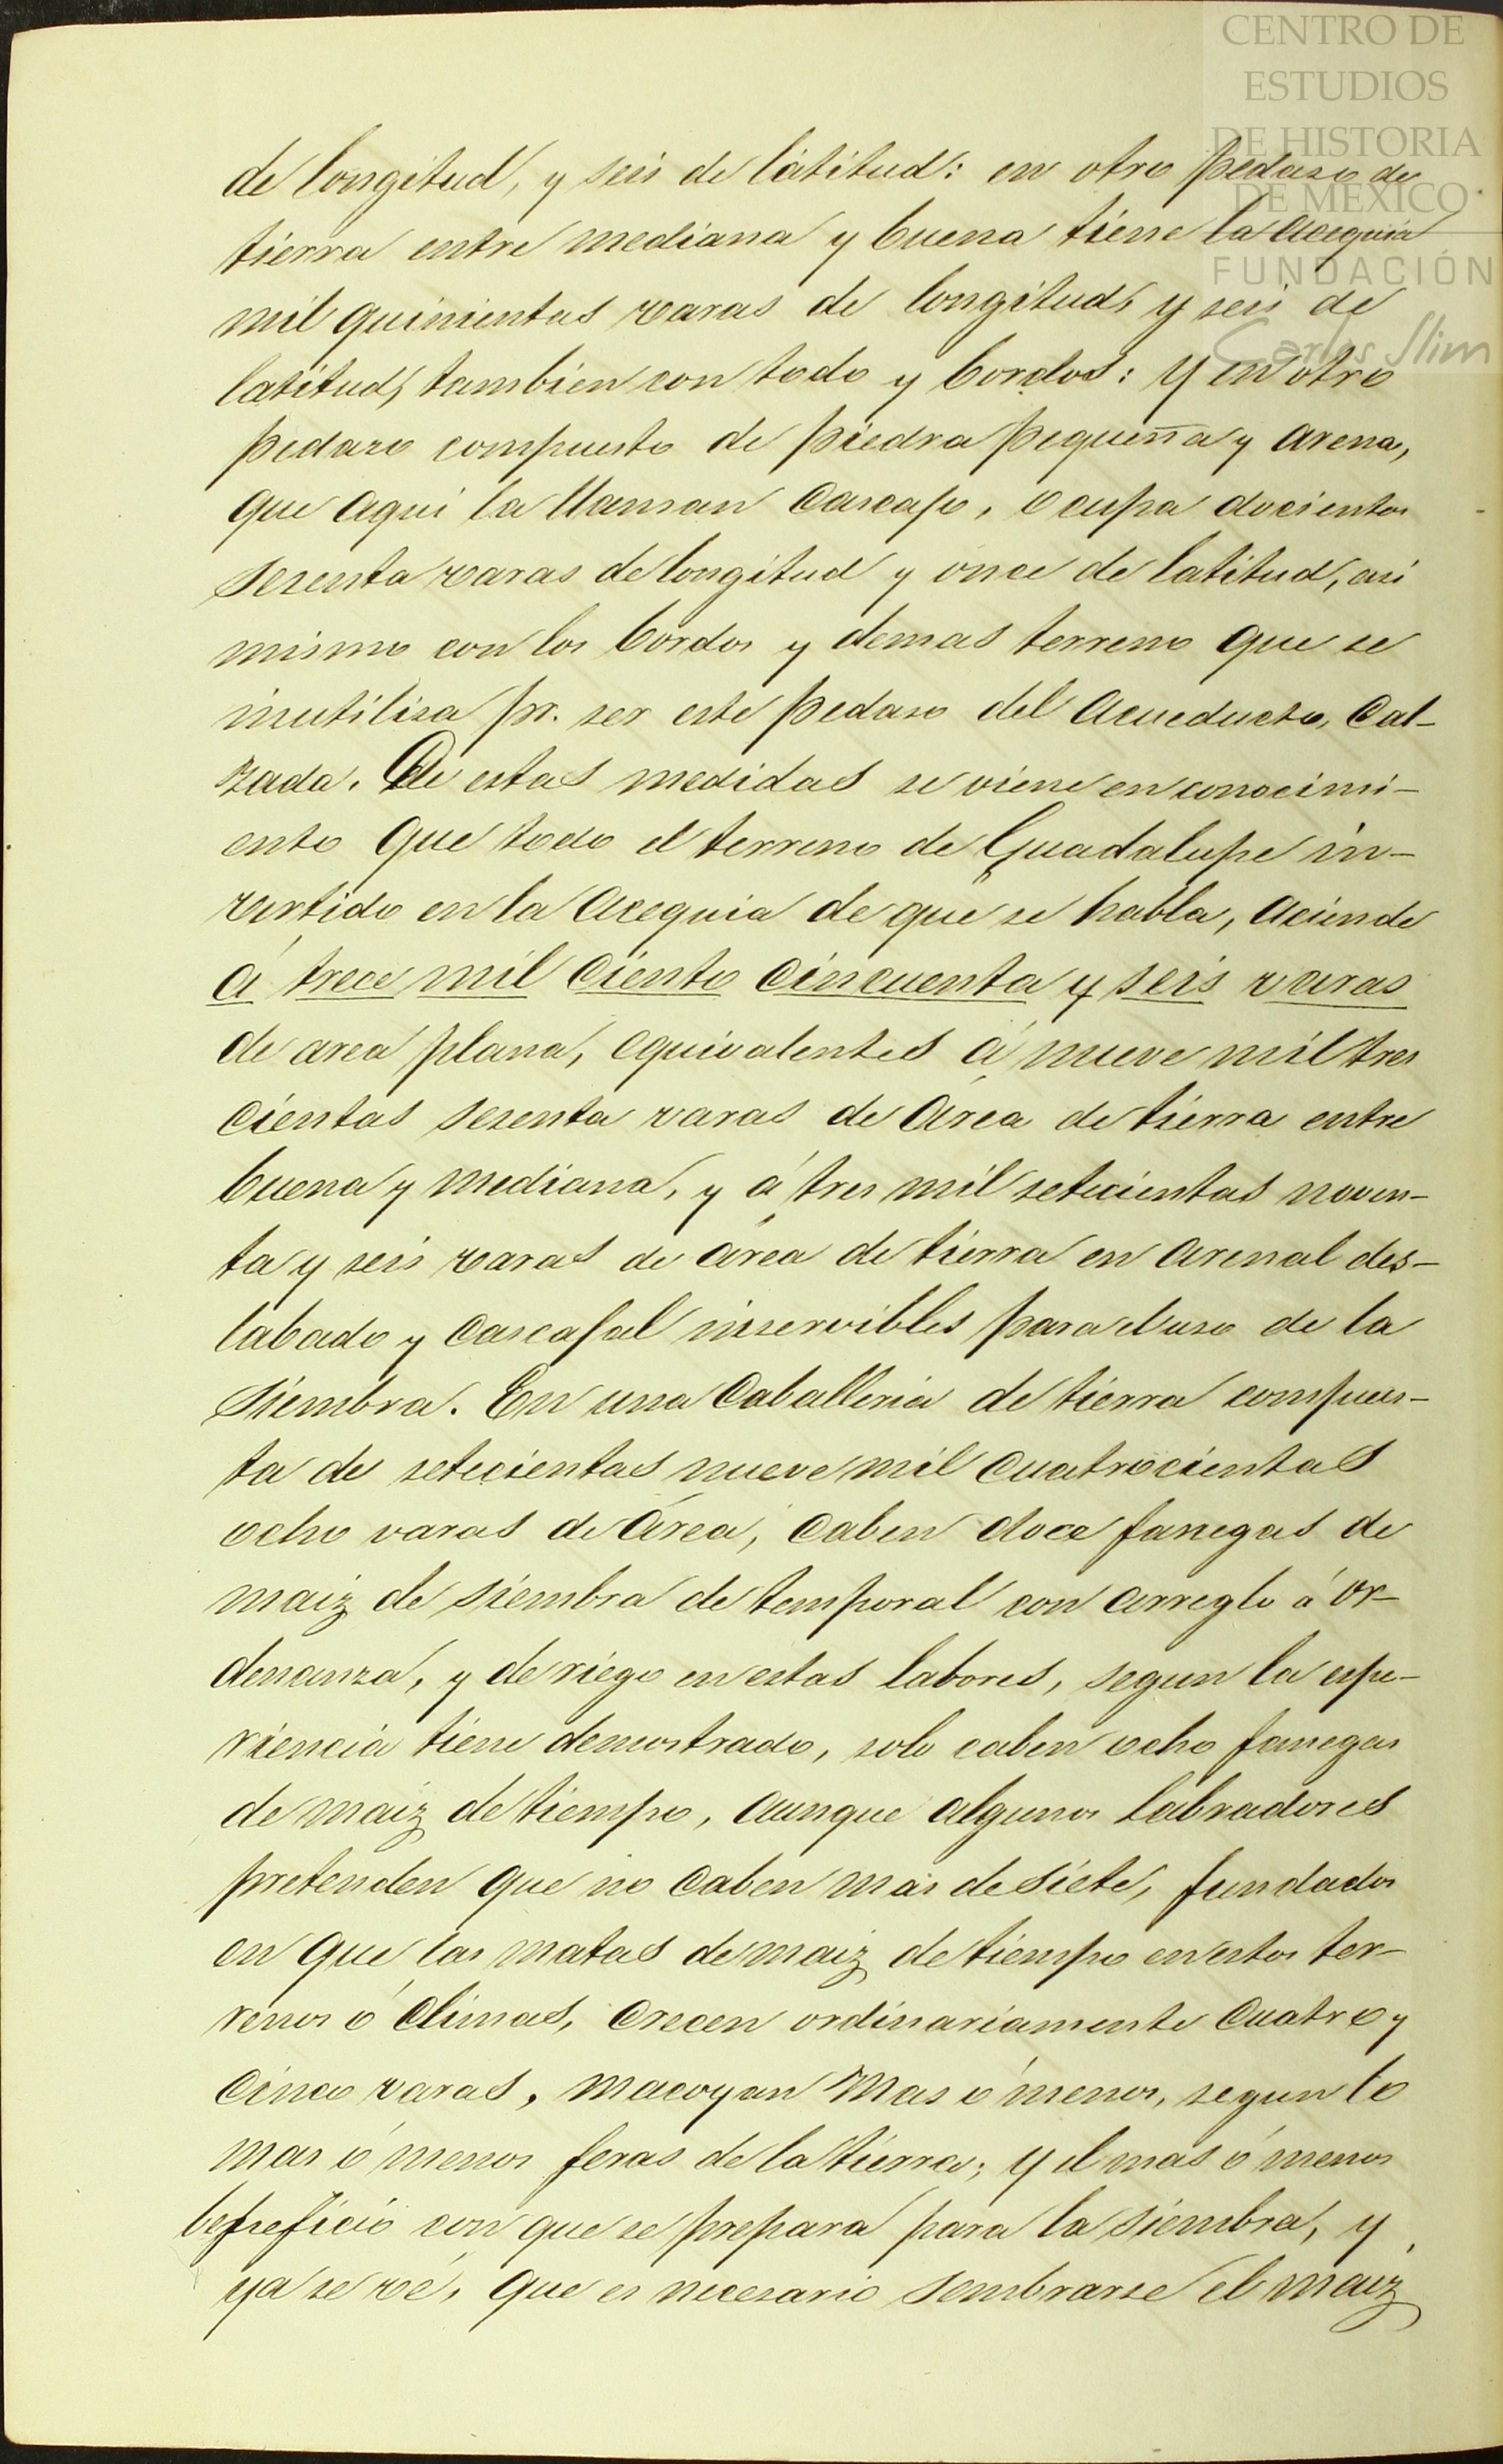 CENTRO DE
ESTUDIOS
DE HISTORIA
DE MEXICO
FUNDACIÓN
Carlos Slim
de longitud, y seis de latitud: en otro pedaso de
tierra entre mediana y buena tiene la acequia
mil quinientas varas de longitud, y seis de
latitud, tambien con todo y bordos: y en otro
pedazo compuesto de piedra pequeña y arena,
que aqui la llaman Cascajo, ocupa docientos
sesenta varas de longitud y once de latitud, asi
mismo con los bordos y demas terreno que se
inutilisa pr. ser este pedaso del Acueducto, Cal-
zada. De estas medidas se viene en conocimi-
ento que todo el terreno de Guadalupe in-
vertido en la Acequia de que se habla, aciende
á trece mil ciento cincuenta y seis varas
de area plana, equivalentes á nueve mil tres
cientas sesenta varas de Area de tierra entre
buena y mediana, y á tres mil setecientas noven-
ta y seis varas de área de tierra en arenal des-
labado y cascajal inservibles para el uso de la
siembra. En una Caballeria de tierra compues-
ta de setecientas nueve mil cuatrocientas
ocho varas de Área, caben doce fanegas de
maiz de siembra de temporal con arreglo á or-
denanza, y de riego en estas labores, segun la espe-
riencia tiene demostrado, solo caben ocho fanegas
de maiz de tiempo, aunque algunos labradores
pretenden que no caben mas de siete, fundados
en que las matas de maiz de tiempo en estos ter-
renos ó climas, crecen ordinariamente cuatro y
cinco varas, macoyan mas ó menos, segun lo
mas ó menos feras de la tierra; y el mas ó menos
beneficio con que se prepara para la siembra, y
ya se vé, que es necesario sembrarse el maiz